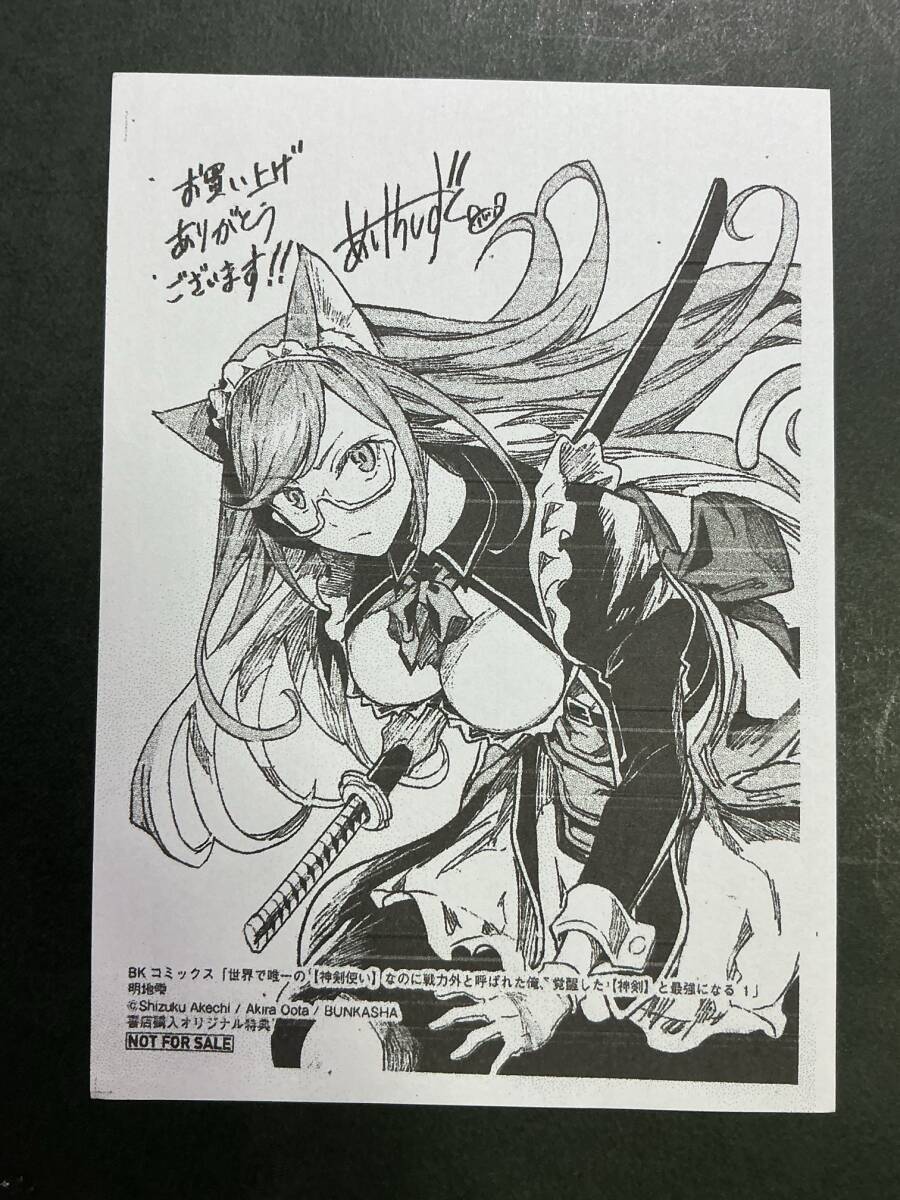 お買い上げ
ありがとう
ございます!!
あけちしずく
BK コミックス「世界で唯一の【神剣使い】なのに戦力外と呼ばれた俺、覚醒した【神剣】と最強になる 1」
明地雫
©Shizuku Akechi / Akira Oota / BUNKASHA
書店購入オリジナル特典
NOT FOR SALE